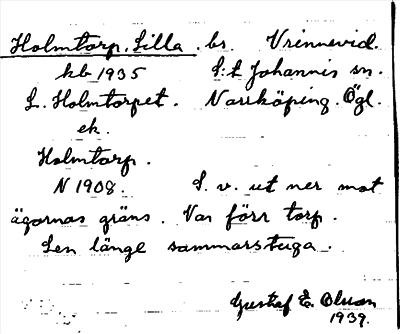 Holmtorp, Lilla . bs. Vrinnevid.
kb 1935 S:t Johannis sn.
L. Holmtorpet. Norrköping. Ögl.
ek.
Holmtorp.
N 1908. S. v. ut ner mot
ägornas gräns. Var förr torp.
Sen länge sommarstuga.
Gustaf E. Olsson
1939.